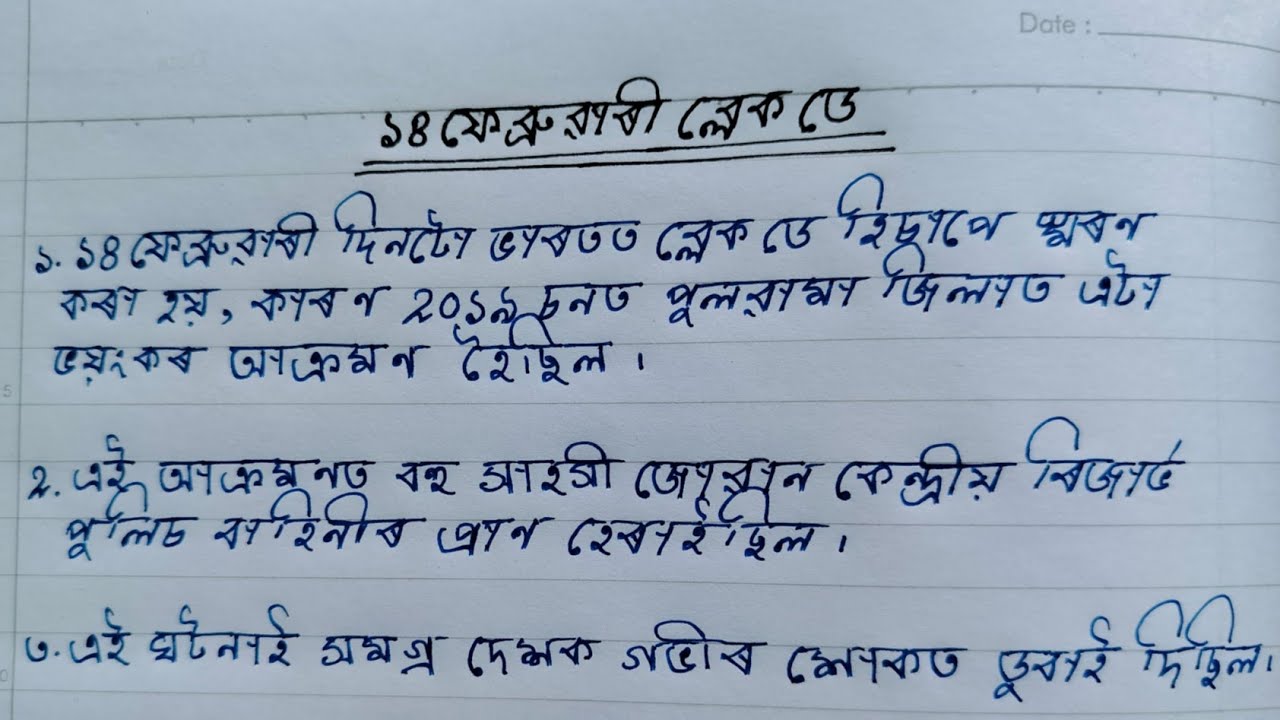 Date :
১৪ ফেব্ৰুৱাৰী ব্লেক ডে
১. ১৪ ফেব্ৰুৱাৰী দিনটো ভাৰতত ব্লেক ডে হিচাপে স্মৰন
কৰা হয়, কাৰণ ২০১৯ চনত পুলৱামা জিলাত এটা
ভয়ংকৰ আক্ৰমণ হৈছিল ।
২. এই আক্ৰমনত বহু সাহসী জোৱান কেন্দ্ৰীয় ৰিজাৰ্ভ
পুলিচ বাহিনীৰ প্ৰান হেৰাইছিল ।
৩. এই ঘটনাই সমগ্ৰ দেশক গভীৰ শোকত ডুবাই দিছিল ।